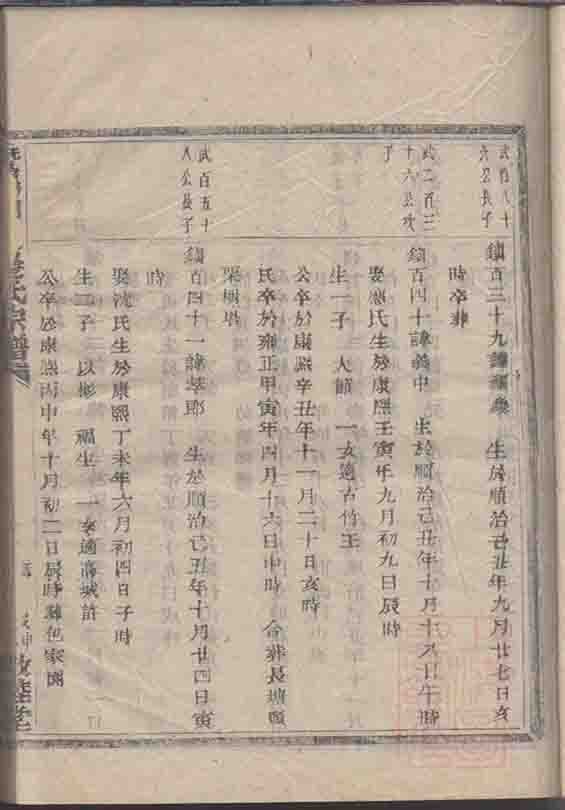 武百八十
六公長子
鎮百三十九諱 生於順治己丑年九月廿七日亥
時卒葬
武二百三
十六公次
子
鎮百四十諱義中 生於順治己丑年十月十八日午時
娶應氏生於康熙壬寅年九月初九日辰時
生一子 人 一女適古竹王
公卒於康熙辛丑年十一月二十日亥時
氏卒於雍正甲寅年四月十六日申時 合葬長塘頭
武百五十
八公長子
鎮百四十一諱萃郎 生於順治己丑年十月廿四日寅
時
娶沈氏生於康熙丁未年六月初四日子時
生二子 以彬 福生 一女適高城許
公卒於康熙丙申年十月初二日辰時葬包家園
氏宗譜